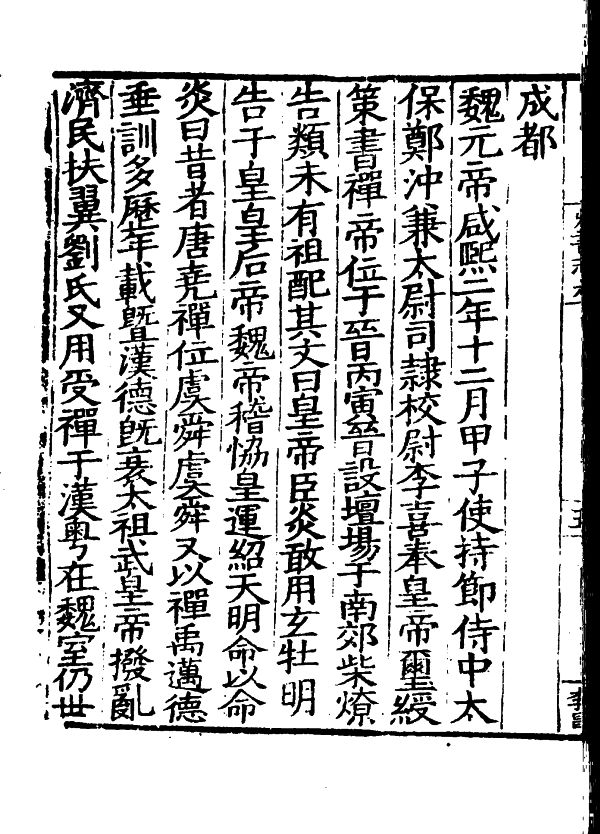 成都
魏元帝咸熙二年十二月甲子使持節侍中太
保鄭沖兼太尉司隸校尉李喜奉皇帝璽綬
策書禪帝位于晉丙寅晉設壇場于南郊柴燎
告類未有祖配其文曰皇帝臣炎敢用玄牡明
告于皇皇后帝魏帝稽恊皇運紹天明命以命
炎曰昔者唐堯禪位虞舜虞舜又以禪禹邁德
垂訓多歷年載曁漢德旣衰太祖武皇帝撥亂
濟民扶翼劉氏又用受禪于漢粤在魏室仍世